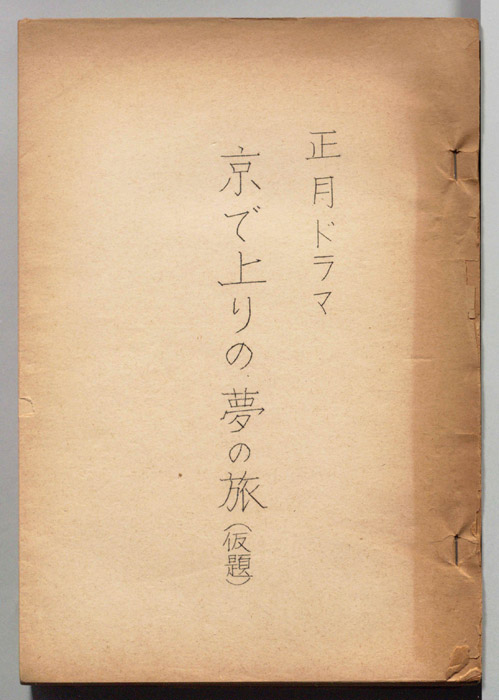 正月ドラマ
京で上りの夢の旅(仮題)